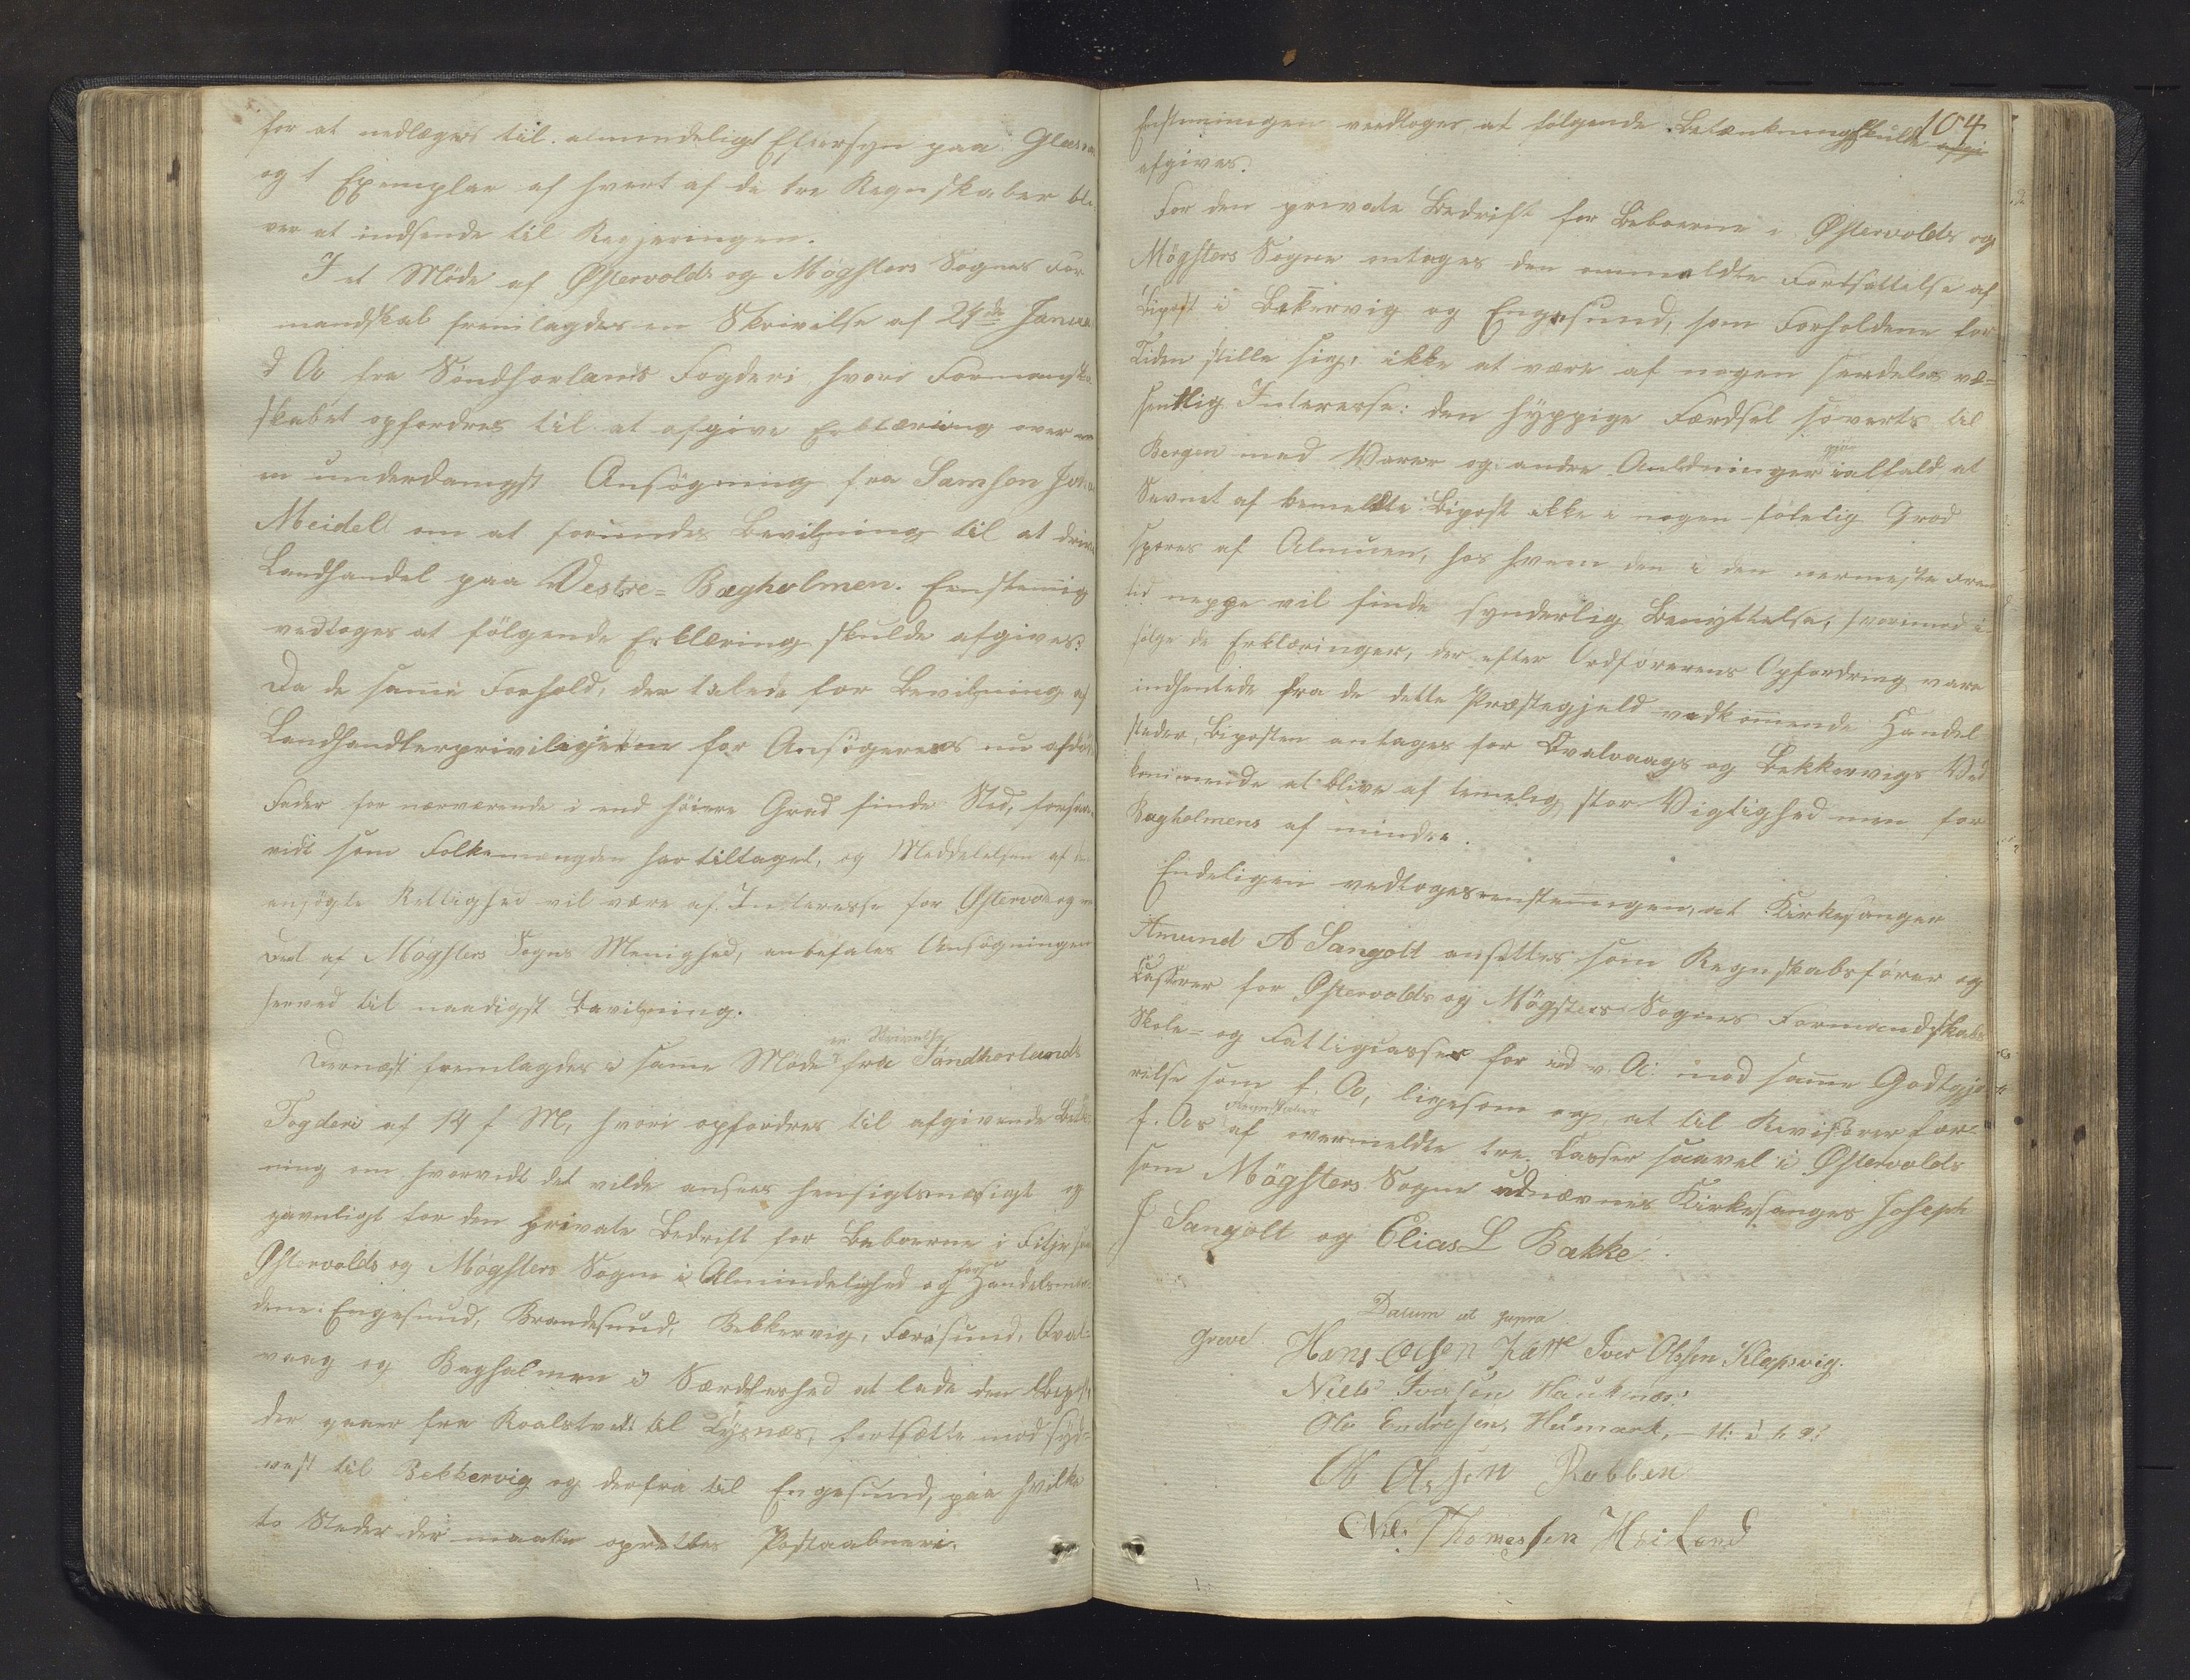 for at nedlægges til almindeligt Eftersyn paa
og 1 Exemplar af hvert af de tre Regnskaber bli-
ver at indsende til Regjeringen.
I et Møde af Østervolds og Møgsters Sognes For-
mandskab fremlagdes en Skrivelse af 24de Januar
d A fra Søndhorlands Fogderi hvori Formand-
skabet opfordres til at afgive Erklæring over
en underdanigst Ansøgning fra Samson
Meidell om at forundes Bevilgning til at drive
Landhandel paa Vestre=Bægholmen. Eenstemig
vedtoges at følgende Erklæring skulde afgives:
Da de samme Forhold, der talede for Bevilgning af
Landhandlerpriviligierne for Ansøgerens nu afdøde
Fader for nærværende i end høiere Grad finde Sted, forsaa-
vidt som Folkemængden har tiltaget, og Meddelelsen af den
ansøgte Rettighed vil være af Interesse for Østervold og en
Deel af Møgsters Sogns Menighed, anbefales Ansøgningen
herved til naadigst Bevilgning.
Dernæst fremlagdes i samme Møde en Skrivelse fra Søndhorlands
Fogderi af 14 f M, hvori opfordres til afgivende Betænk-
ning om hvorvidt det vilde ansees hensigtsmæsigt og
gavnligt for den private Bedrift for Beboerne i Fitje
Østervolds og Møgsters Sogne i Almindelighed og for Handelsmæn-
dene: Engesund, Brandesund, Bekkervig, Færøsund, Qval-
vaag og Bagholmen i Særdeleshed at lade den Bipost,
der gaaer fra Koalstvedt til Tysnæs, fortsætte mod syd-
vest til Bekkervig og derfra til Engesund, paa hvilke
to Steder der maatte oprettes Postaabneri.
104
Eenstemmigen vedtoges at følgende Betænkning skulde
afgives:
For den private Bedrift for Beboerne i Østervolds og
Møgsters Sogne antages den anmeldte Fortsættelse af
Bipost i Bekervig og Engesund, som Forholdene for
Tiden stille sig, ikke at være af nogen særdeles væ-
sentlig Interesse: den hyppige Færdsel søverts til
Bergen med Varer og andre Anledninger gjør ialfald at
Savnet af bemeldte Bipost ikke i nogen følelig Grad
spores af Almuen, hos hvem den i den nærmeste Frem-
tid neppe vil finde synderlig Benyttelse, hvorimod i
følge de Erklæringer, der efter Ordførerens Opfordring vare
indhentede fra de dette Præstegjeld vedkommende Handel
steder, Biposten antages for Qvalvaags og Bekkervigs Ved
kommende at blive af temelig stor Vigtighed men for
Bagholmens af mindre.
Endeligen vedtoges enstemmigen, at Kirkesanger
Amund A Sangolt ansettes som Regnskabsfører og
Casserer for Østervolds og Møgsters Sognes Formandskabs
Skole- og Fattigcasser for ind v. A. mod samme Godtgjø-
relse som f. A, ligesom og at til Revisorer for
f. As Regnskaber af overmeldte tre Casser saavel i Østervolds
som Møgsters Sogne udnævnes Kirkesanger Joseph
J Sangolt og Elias L Bakke.
Datum ut supra
Greve. Hans Olsen Iver Olssen Klepsvig.
Niels Iversen Haukenæs.
Ole Endresen, Hiimark,
Ole Olssen Rabben
Nils Thomassen Høiland